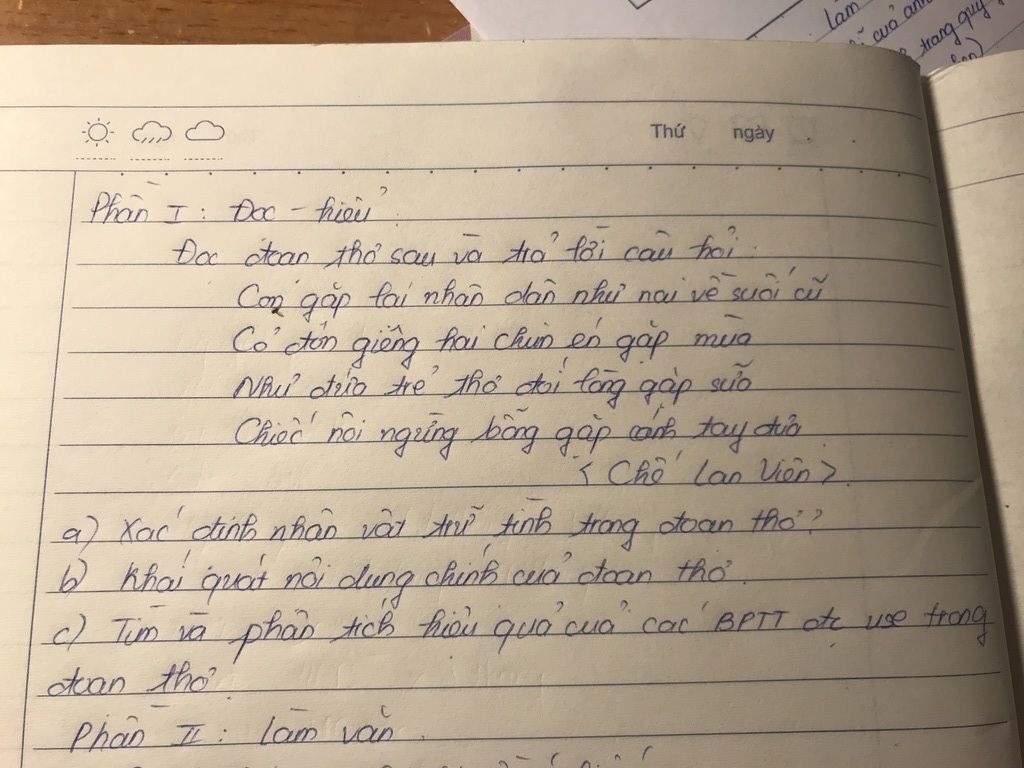 làm
của anh
trang quý
Thứ ngày
Phần I: Đọc - hiểu.
Đọc đoạn thơ sau và trả lời câu hỏi:
Con gặp lại nhân dân như nai về suối cũ
Cỏ đón giêng hai chim én gặp mùa
Như đứa trẻ thơ đói lòng gặp sữa
Chiếc nôi ngừng bỗng gặp cánh tay đưa
< Chế Lan Viên >.
a) Xác định nhân vật trữ tình trong đoạn thơ?
b) Khái quát nội dung chính của đoạn thơ.
c) Tìm và phân tích hiệu quả của các BPTT đc use trong
đoạn thơ
Phần II: Làm văn.